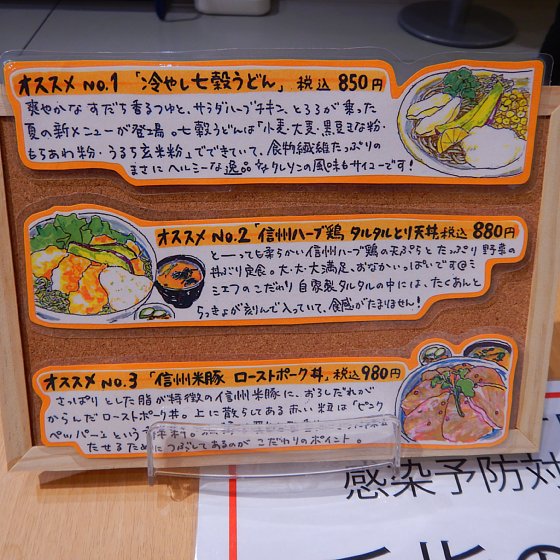 オススメ NO.1 「冷やし七穀うどん」 税込 850円
爽やかな すだち香るつゆと、サラダハーブチキン、とろろが乗った
夏の新メニューが登場。七穀うどんは「小麦・大麦・黒豆きな粉・
もちあわ粉・うるち玄米粉」でできていて、食物繊維たっぷりの
まさにヘルシーな逸品
の風味もサイコーです!
オススメ NO.2 「信州ハーブ鶏 タルタルとり天丼 税込 880円
と――っても柔らかい信州ハーブ鶏の天ぷらと たっぷり 野菜の
丼ぶり定食。大・大・大満足、おなかいっぱいです@ミ
ミエフのこだわり 自家製タルタルの中には、たくあんと
らっきょが刻んで入っていて、食感がたまりません!
オススメ NO.3 「信州米豚 ローストポーク丼」 税込 980円
さっぱり とした脂が特徴の信州米豚に、おろしだれがが
からんだ ローストポーク丼。上に散らしてある 赤い粒は「ピンク
ペッパー」という
たせるためにつぶしてあるのが こだわりのポイント。
感染予防対